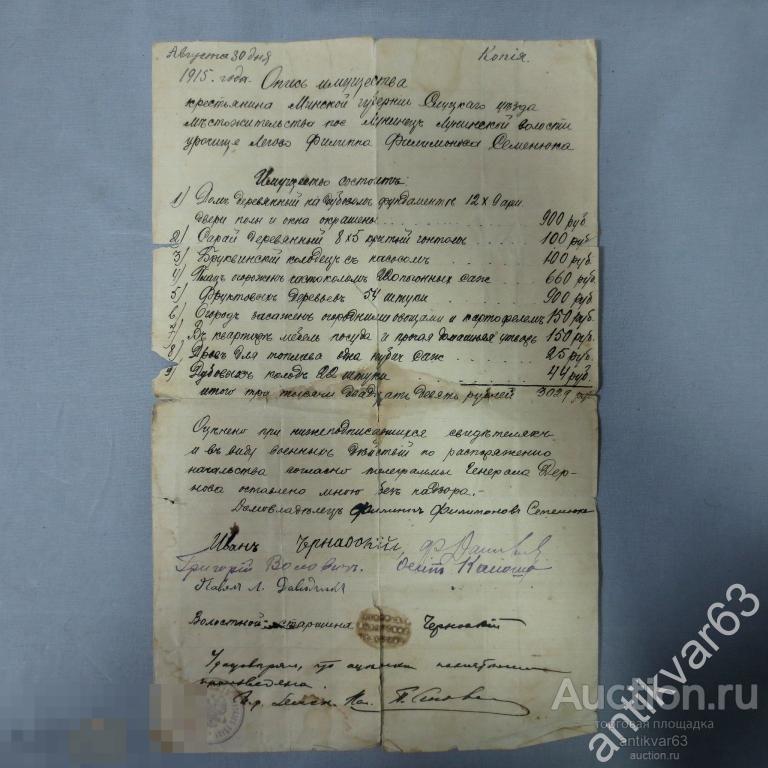 Августа 30 дня Копія.
1915. года. Опись имущества
крестьянина Минской губернии Слуцкаго уезда
местожительства пос Лунинец Лунинской волости
урочище Легово Филиппа Филимонова Семенюка
Имущество состоитъ
1) Домъ деревянный на дубовом фундаменте 12 х
двери полы и окна окрашены 900 руб.
2) Сарай деревянный 8х5 крытый гонтомъ 100 руб.
3) колодецъ съ насосомъ 100 руб.
4) Плацъ огороженъ частоколомъ 220 погонных саж 660 руб.
5) Фруктовыхъ деревьевъ 54 штуки 900 руб.
6) Огородъ засаженъ огородними овощами и картофелемъ 150 руб.
7) Въ квартире мебель посуда и прочая домашняя утварь 150 руб.
8) Дровъ для топлива одна кубич саж 25 руб.
9) Дубовыхъ колодъ 22 штуки 44 руб.
итого три тысячи двадцать девять рублей 3029 руб
Оценено при нижеподписавшихся свидѣтеляхъ
и въ виду военныхъ дѣйствой по распоряжению
начальства согласно телеграммы Генерала Дер-
нова оставлено мною безъ надзора.-
Домовладѣлецъ Филиппъ Филимоновъ Семенюк
Иванъ Чернавскій
Григорій Воловичъ Осипъ
Павелъ Л.
Волостной старшина
что оценка
произведена.
Auction.ru
торговая площадка
antikvar63
auction.ru
antikvar63